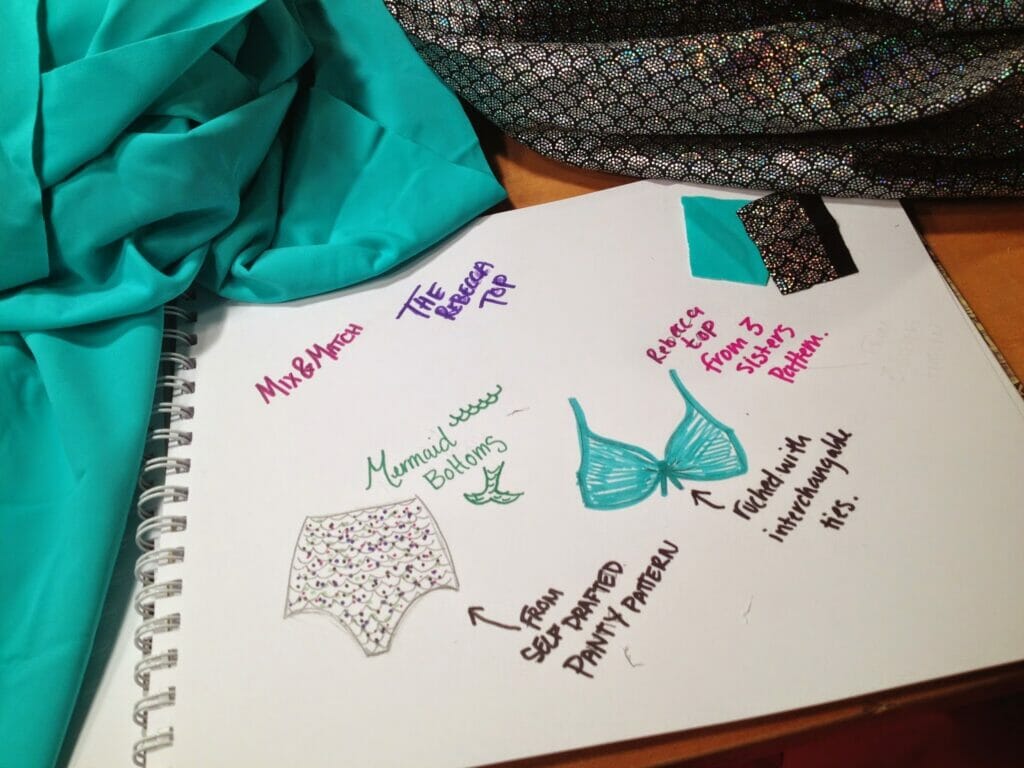 MIX & MATCH
THE
REBECCA
TOP
Rebecca
top
from 3
sisters
Pattern.
Mermaid
Bottoms
ruched with
interchangable
ties.
FROM
SELF DRAFTED
PANTY PATTERN